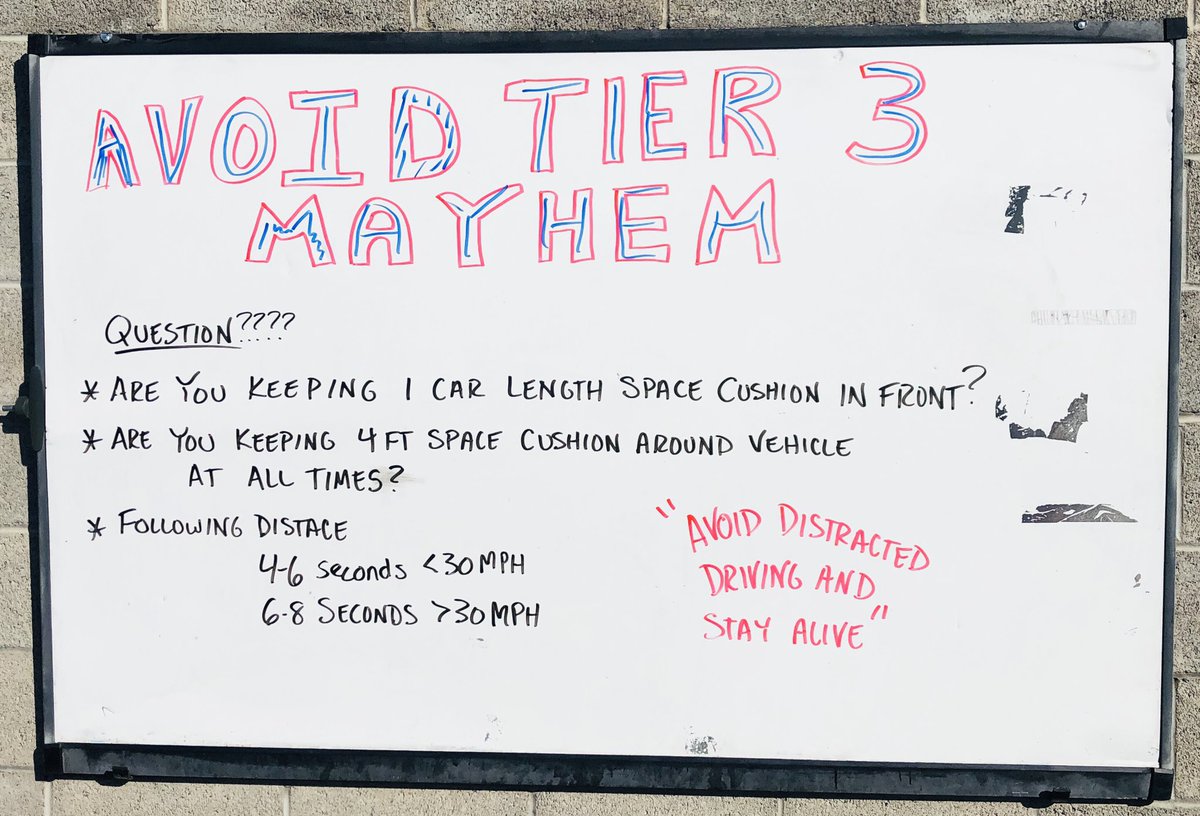 AVOID TIER 3
MAYHEM
QUESTION????
* ARE YOU KEEPING 1 CAR LENGTH SPACE CUSHION IN FRONT?
* ARE YOU KEEPING 4 FT SPACE CUSHION AROUND VEHICLE
AT ALL TIMES?
* FOLLOWING DISTACE
4-6 seconds <30 MPH
6-8 SECONDS >30 MPH
"AVOID DISTRACTED
DRIVING AND
STAY ALIVE"